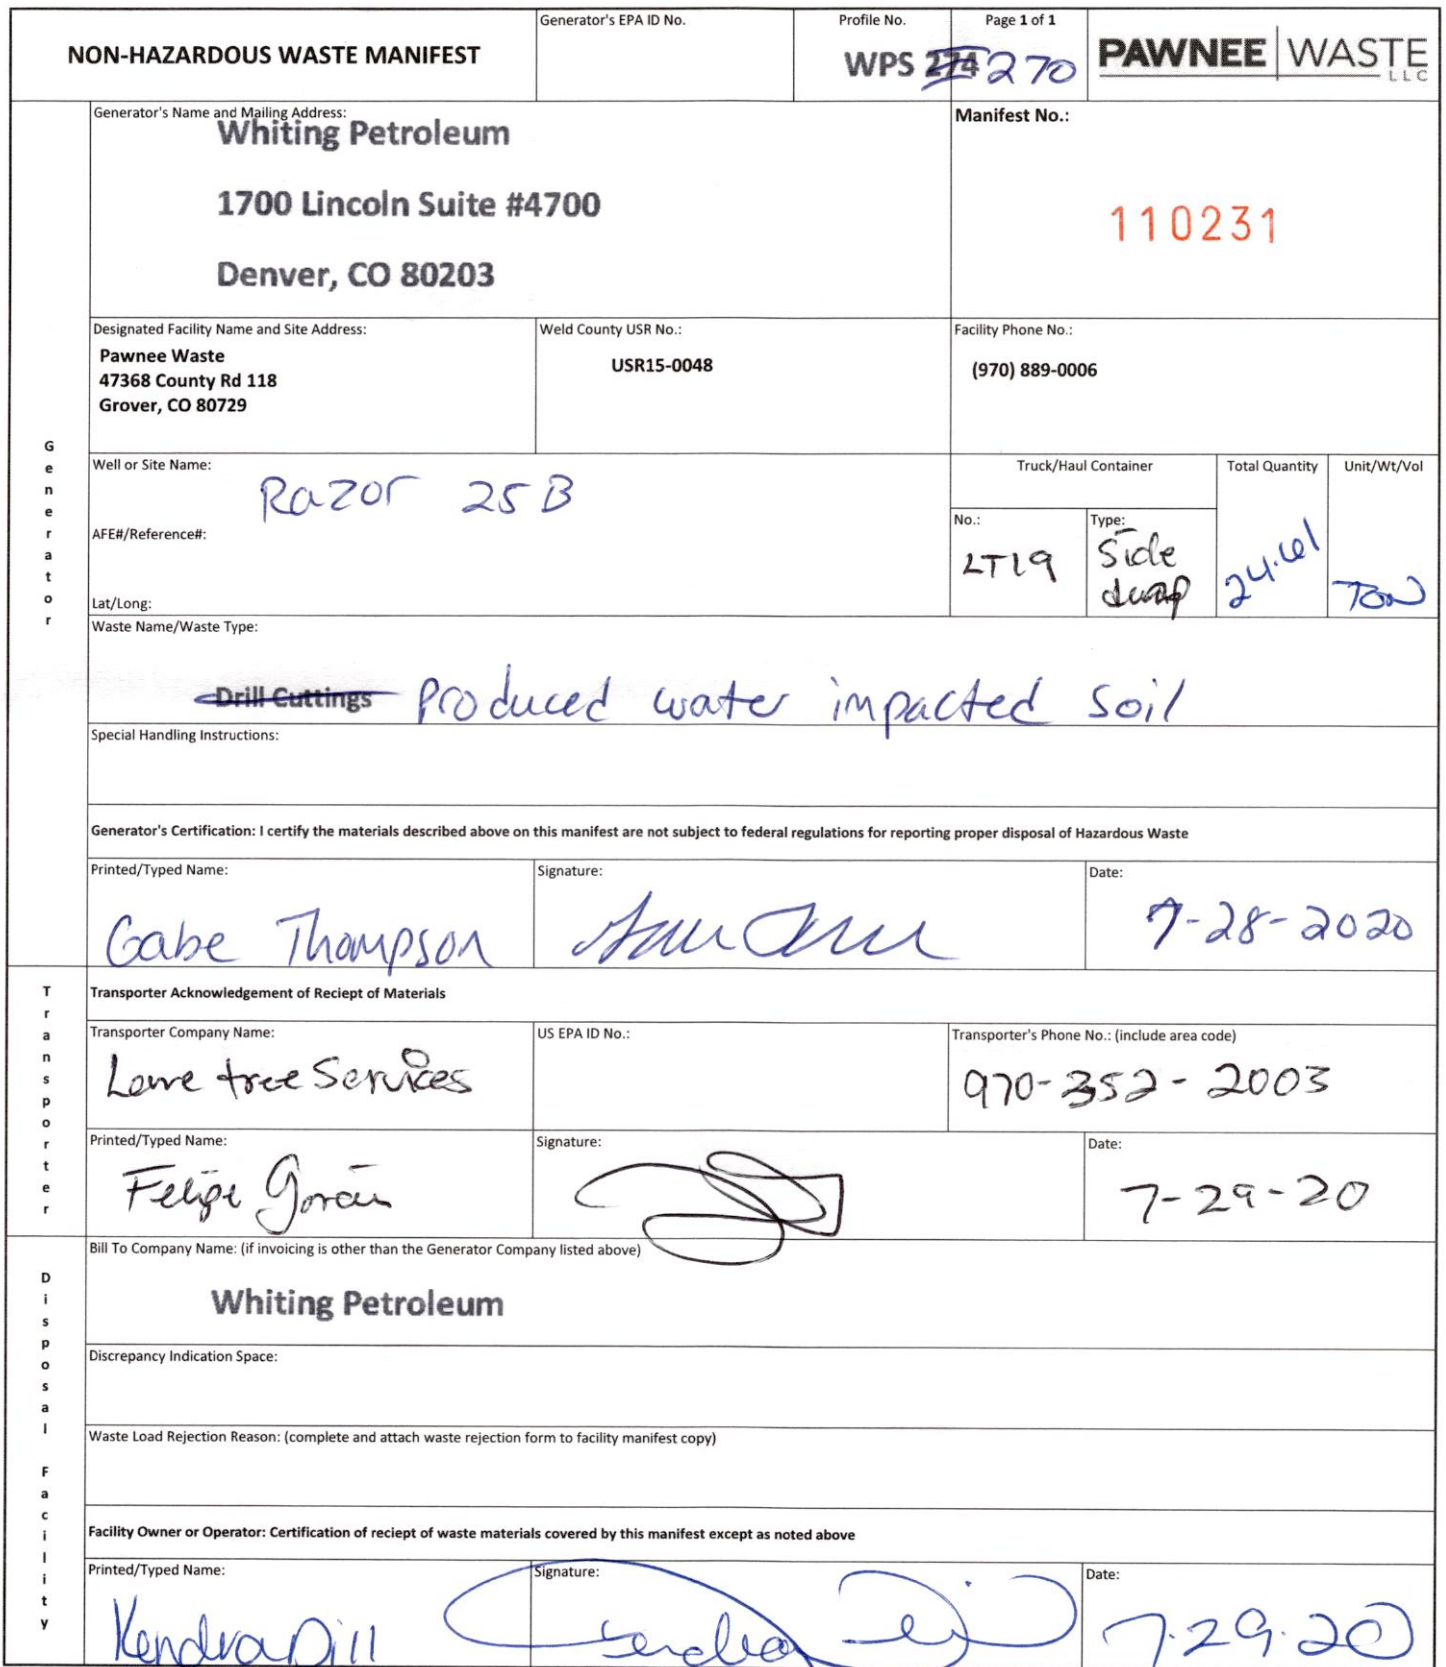 NON-HAZARDOUS WASTE MANIFEST
Generator's EPA ID No.
Profile No.
WPS 274 270
Page 1 of 1
PAWNEE WASTE
LLC
Generator
Generator's Name and Mailing Address:
Whiting Petroleum
1700 Lincoln Suite #4700
Denver, CO 80203
Manifest No.:
110231
Designated Facility Name and Site Address:
Pawnee Waste
47368 County Rd 118
Grover, CO 80729
Weld County USR No.:
USR15-0048
Facility Phone No.:
(970) 889-0006
Well or Site Name:
Razor 25 B
AFE#/Reference#:
Lat/Long:
Truck/Haul Container
No.:
LT19
Type:
Side
dump
Total Quantity
24.61
Unit/Wt/Vol
TON
Waste Name/Waste Type:
Drill Cuttings Produced water impacted soil
Special Handling Instructions:
Generator's Certification: I certify the materials described above on this manifest are not subject to federal regulations for reporting proper disposal of Hazardous Waste
Printed/Typed Name:
Gabe Thompson
Signature:
Date:
7-28-2020
Transporter
Transporter Acknowledgement of Reciept of Materials
Transporter Company Name:
Lone tree Services
US EPA ID No.:
Transporter's Phone No.: (include area code)
970-352-2003
Printed/Typed Name:
Felipe
Signature:
Date:
7-29-20
Disposal Facility
Bill To Company Name: (if invoicing is other than the Generator Company listed above)
Whiting Petroleum
Discrepancy Indication Space:
Waste Load Rejection Reason: (complete and attach waste rejection form to facility manifest copy)
Facility Owner or Operator: Certification of reciept of waste materials covered by this manifest except as noted above
Printed/Typed Name:
Kendra Dill
Signature:
Kendra Dill
Date:
7.29.20